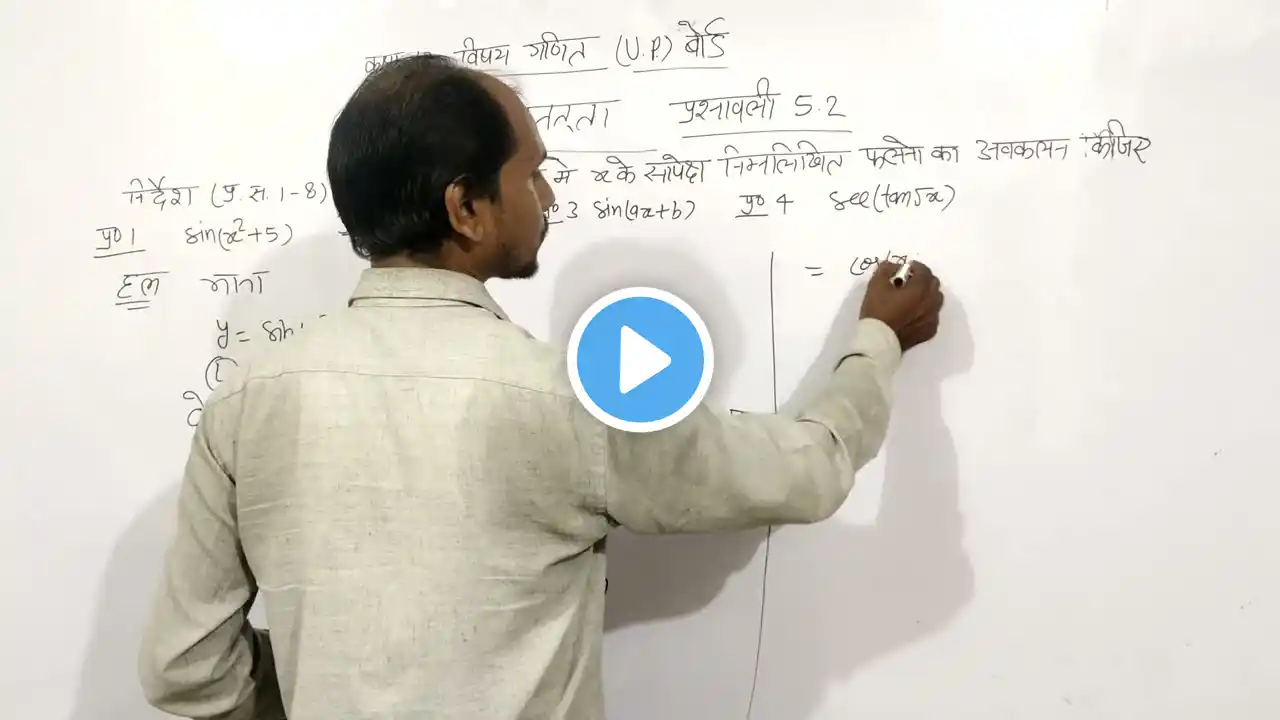 विषय गणित (U.P.) बोर्ड
प्रश्नावली 5.2
निर्देश (प्र. स. 1-8) में x के सापेक्ष निम्नलिखित फलनों का अवकलन कीजिए
प्र० 1 sin(x²+5) प्र० 3 sin(ax+b) प्र० 4 sec(tan√x)
हल माना
y = sin
= cos(x